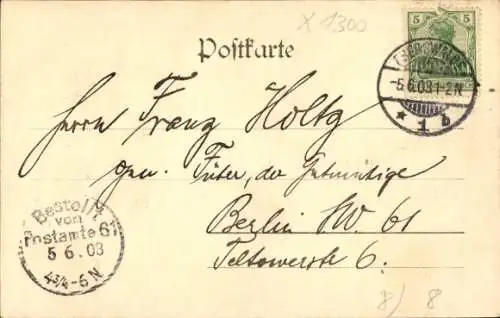 X 1300
Postkarte
5 5
-5.6.03 1-2N
* 1 b
Herrn Franz Holtz
gen. Futer, der Gutmütige
Berlin SW. 61
Teltowerstr 6.
Bestellt
vom
Postamte 61
5 6.03
4¾-6N
8) 8